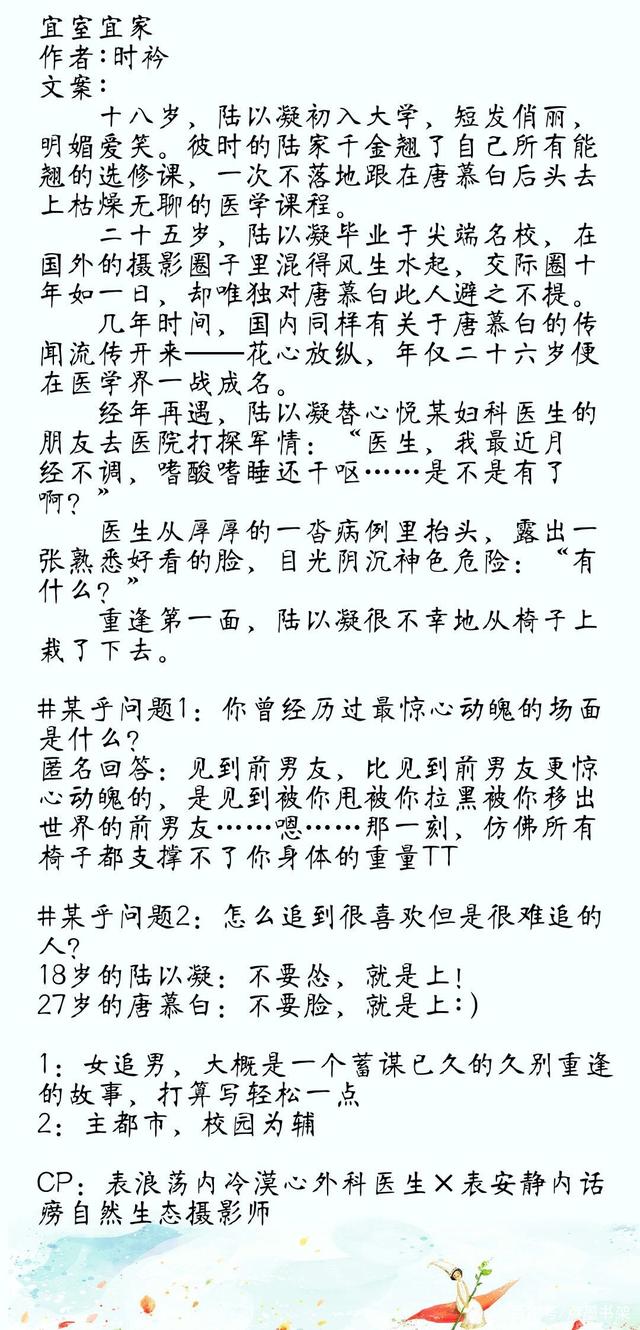 宜室宜家
作者:时衿
文案:
十八岁，陆以凝初入大学，短发俏丽，
明媚爱笑。彼时的陆家千金翘了自己所有能
翘的选修课，一次不落地跟在唐慕白后头去
上枯燥无聊的医学课程。
二十五岁，陆以凝毕业于尖端名校，在
国外的摄影圈子里混得风生水起，交际圈十
年如一日，却唯独对唐慕白此人避之不提。
几年时间，国内同样有关于唐慕白的传
闻流传开来——花心放纵，年仅二十六岁便
在医学界一战成名。
经年再遇，陆以凝替心悦某妇科医生的
朋友去医院打探军情：“医生，我最近月
经不调，嗜酸嗜睡还干呕……是不是有了
啊？”
医生从厚厚的一沓病例里抬头，露出一
张熟悉好看的脸，目光阴沉神色危险：“有
什么？”
重逢第一面，陆以凝很不幸地从椅子上
栽了下去。
#某乎问题1：你曾经历过最惊心动魄的场面
是什么？
匿名回答：见到前男友，比见到前男友更惊
心动魄的，是见到被你甩被你拉黑被你移出
世界的前男友……嗯……那一刻，仿佛所有
椅子都支撑不了你身体的重量TT
#某乎问题2：怎么追到很喜欢但是很难追的
人？
18岁的陆以凝：不要怂，就是上！
27岁的唐慕白：不要脸，就是上:)
1：女追男，大概是一个蓄谋已久的久别重逢
的故事，打算写轻松一点
2：主都市，校园为辅
CP：表浪荡内冷漠心外科医生×表安静内话
痨自然生态摄影师